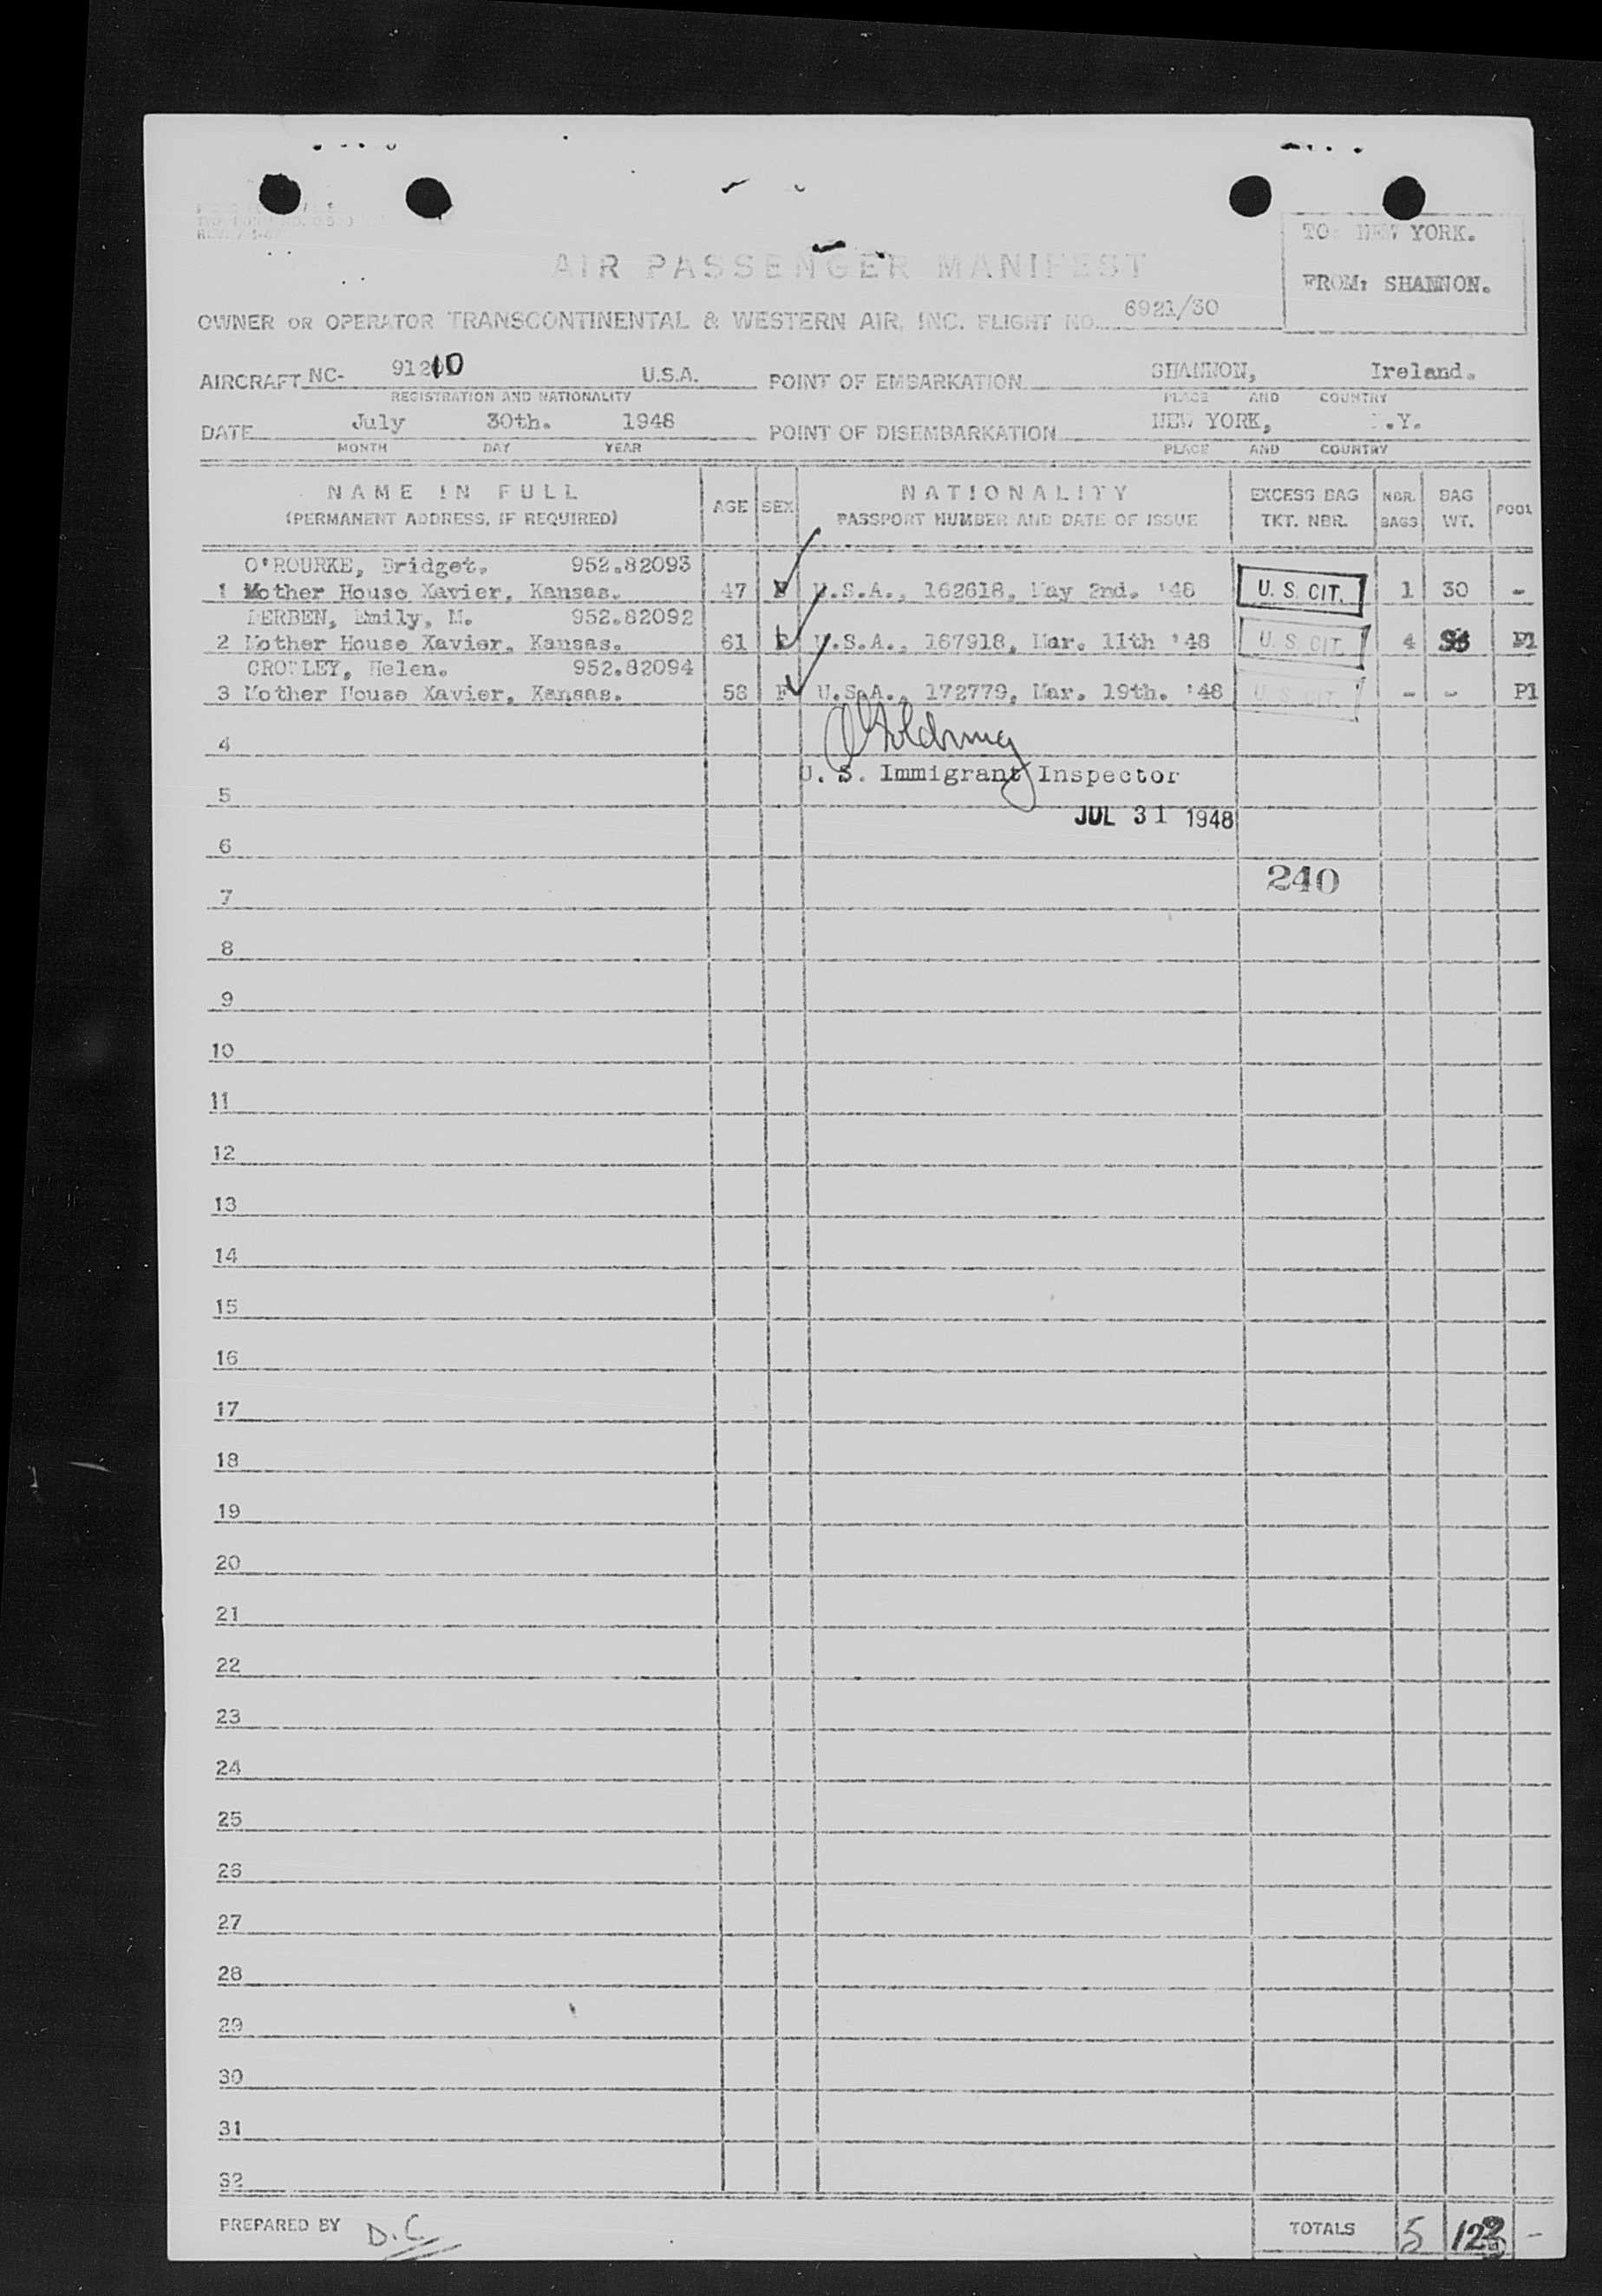 TO: NEW YORK.
FROM: SHANNON.
AIR PASSENGER MANIFEST
OWNER OR OPERATOR TRANSCONTINENTAL & WESTERN AIR, INC. FLIGHT NO. 6921/30
AIRCRAFT NC- 91210 U.S.A. POINT OF EMBARKATION SHANNON, Ireland.
REGISTRATION AND NATIONALITY PLACE AND COUNTRY
DATE July 30th. 1948 POINT OF DISEMBARKATION NEW YORK, N.Y.
MONTH DAY YEAR PLACE AND COUNTRY
NAME IN FULL (PERMANENT ADDRESS, IF REQUIRED) AGE SEX NATIONALITY PASSPORT NUMBER AND DATE OF ISSUE EXCESS BAG TKT. NBR. NBR. BAGS BAG WT. POOL
O'ROURKE, Bridget. 952.82093
1 Mother House Xavier, Kansas. 47 F U.S.A., 162618, May 2nd. '48 U. S. CIT. 1 30 -
FERBEN, Emily, M. 952.82092
2 Mother House Xavier, Kansas. 61 F U.S.A., 167918, Mar. 11th '48 U. S. CIT. 4 P1
CROWLEY, Helen. 952.82094
3 Mother House Xavier, Kansas. 58 F U.S.A., 172779, Mar. 19th. '48 U. S. CIT. - - P1
4
U. S. Immigrant Inspector
5
JUL 31 1948
6
240
7
8
9
10
11
12
13
14
15
16
17
18
19
20
21
22
23
24
25
26
27
28
29
30
31
32
PREPARED BY D.C. TOTALS 5 -